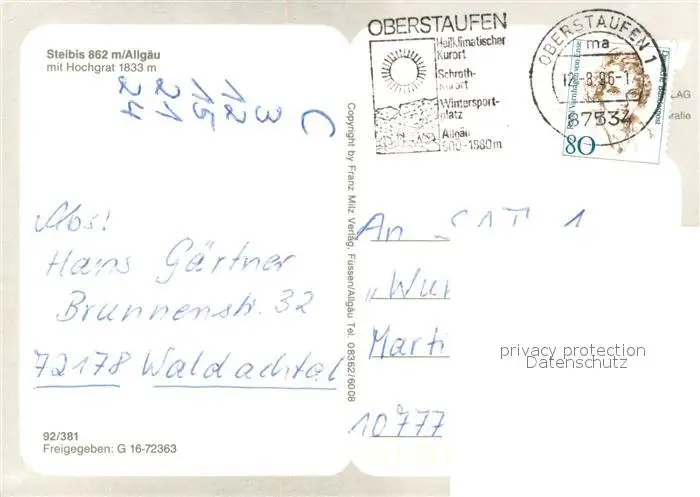 Steibis 862 m/Allgäu
mit Hochgrat 1833 m
OBERSTAUFEN
Heilklimatischer
Kurort
Schroth-
kurort
Wintersport-
platz
Allgäu
800-1880m
OBERSTAUFEN 1
ma
12.-8.96-1
87534
Rahel Varnhagen von Ense
Deutsche Bundespost
80
Copyright by Franz Milz Verlag, Füssen/Allgäu Tel. 08362/6008
Abs!
Hans Gärtner
Brunnenstr. 32
72178 Waldachtal
An SAT 1
„Wun
Marti
10777
privacy protection
Datenschutz
92/381
Freigegeben: G 16-72363